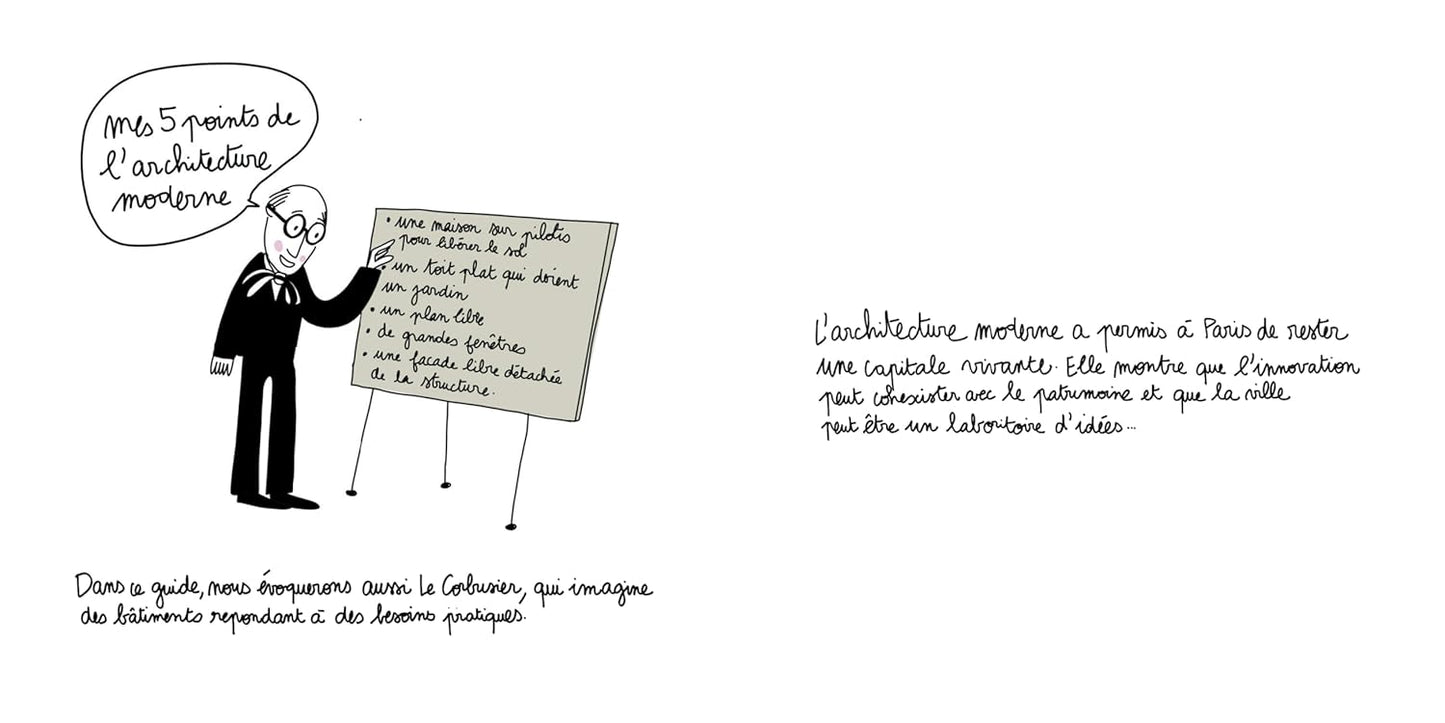 mes 5 points de
l'architecture
moderne
• une maison sur pilotis
pour libérer le sol
• un toit plat qui doient
un jardin
• un plan libre
• de grandes fenêtres
• une façade libre détachée
de la structure.
Dans ce guide, nous évoquerons aussi Le Corbusier, qui imagine
des bâtiments repondant à des besoins pratiques.
L'architecture moderne a permis à Paris de rester
une capitale vivante. Elle montre que l'innovation
peut cohexister avec le patrimoine et que la ville
peut être un laboritoire d'idées...